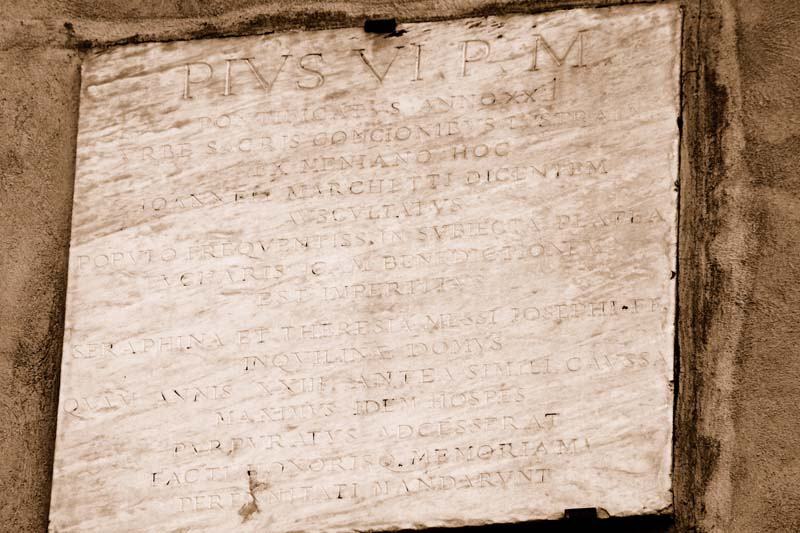 PIVS VI. P. M.
PONTIFICATVS ANNO XXI
VRBE SACRIS CONCIONIBVS LVSTRATA
EX MENIANO HOC
IOANNEM MARCHETTI DICENTEM
AVSCVLTATVS
POPVLO FREQVENTISS. IN SVBIECTA PLATEA
EVCHARISTICAM BENEDICTIONEM
EST IMPERTITVS
SERAPHINA ET THERESIA MESSI IOSEPHI FF
INQVILINAE DOMVS
QVAM ANNIS XXIII ANTEA SIMILI CAVSSA
MAXIMVS IDEM HOSPES
PVRPVRATVS ADCESSERAT
FACTI HONORISQ. MEMORIAM
PERENNITATI MANDARVNT